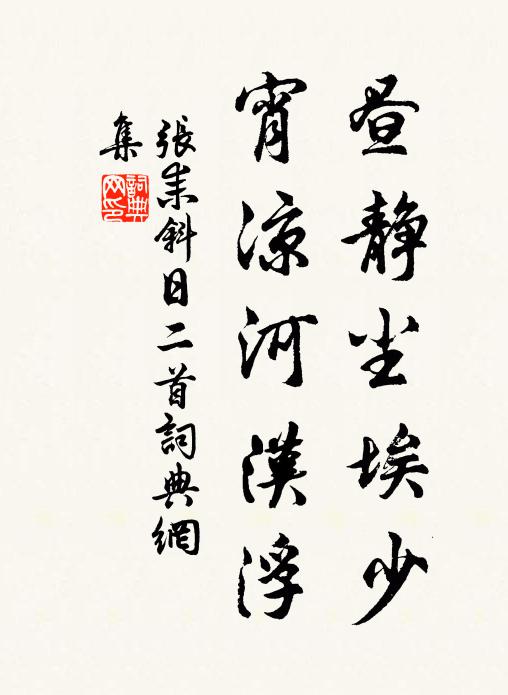 昼静尘埃少
宵涼河漢浮
張耒斜日二首詞典網
集
詞典
网印